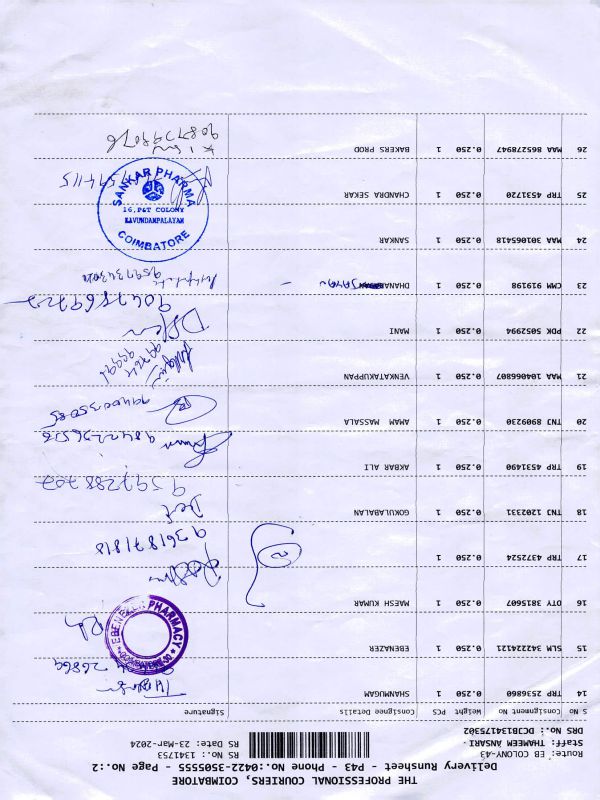 THE PROFESSIONAL COURIERS, COIMBATORE
Delivery Runsheet - P43 - Phone No.:0422-3505555 - Page No.:2
Route: EB COLONY-43
Staff: THAMEEM ANSARI-
DRS No.: DCJB134175302
RS No.: 1341753
RS Date: 23-Mar-2024
S No Consignment No Weight PCS Consignee Details Signature
14 TRP 2536860 0.250 1 SHANMUGAM
15 SLM 342224121 0.250 1 EBENAZER
EBENEZER PHARMACY
16 OTY 3815607 0.250 1 MAESH KUMAR
17 TRP 4372524 0.250 1
9361871818
18 TNJ 1202331 0.250 1 GOKULABALAN
9597288702
19 TRP 4531490 0.250 1 AKBAR ALI
9842236528
20 TNJ 8909230 0.250 1 AMAM MASSALA
21 MAA 104066807 0.250 1 VENKATAKUPPAN
22 PDK 5052994 0.250 1 MANI
9047869722
23 CMM 919198 0.250 1 DHANA
24 MAA 301065418 0.250 1 SANKAR
SANKAR PHARMA
16, P&T COLONY
KAVUNDAMPALAYAM
COIMBATORE
25 TRP 4531720 0.250 1 CHANDRA SEKAR
26 MAA 865278947 0.250 1 BAKERS PROD